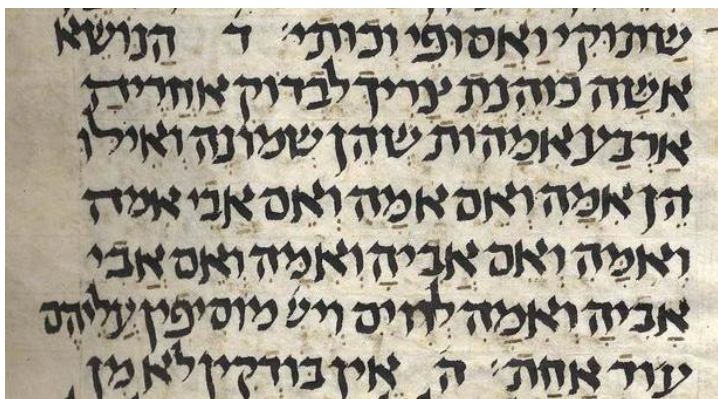 שתוקי ואסופי וכותי׳ ד הנושא
אשה כוהנת צריך לבדוק אחריה
ארבע אמהות שהן שמונה ואילו
הן אמה ואם אמה ואם אבי אמה
ואמה ואם אביה ואמה ואם אבי
אביה ואמה לויים ויש מוסיפין עליהם
עוד אחת׳ ה אין בודקין לא מן